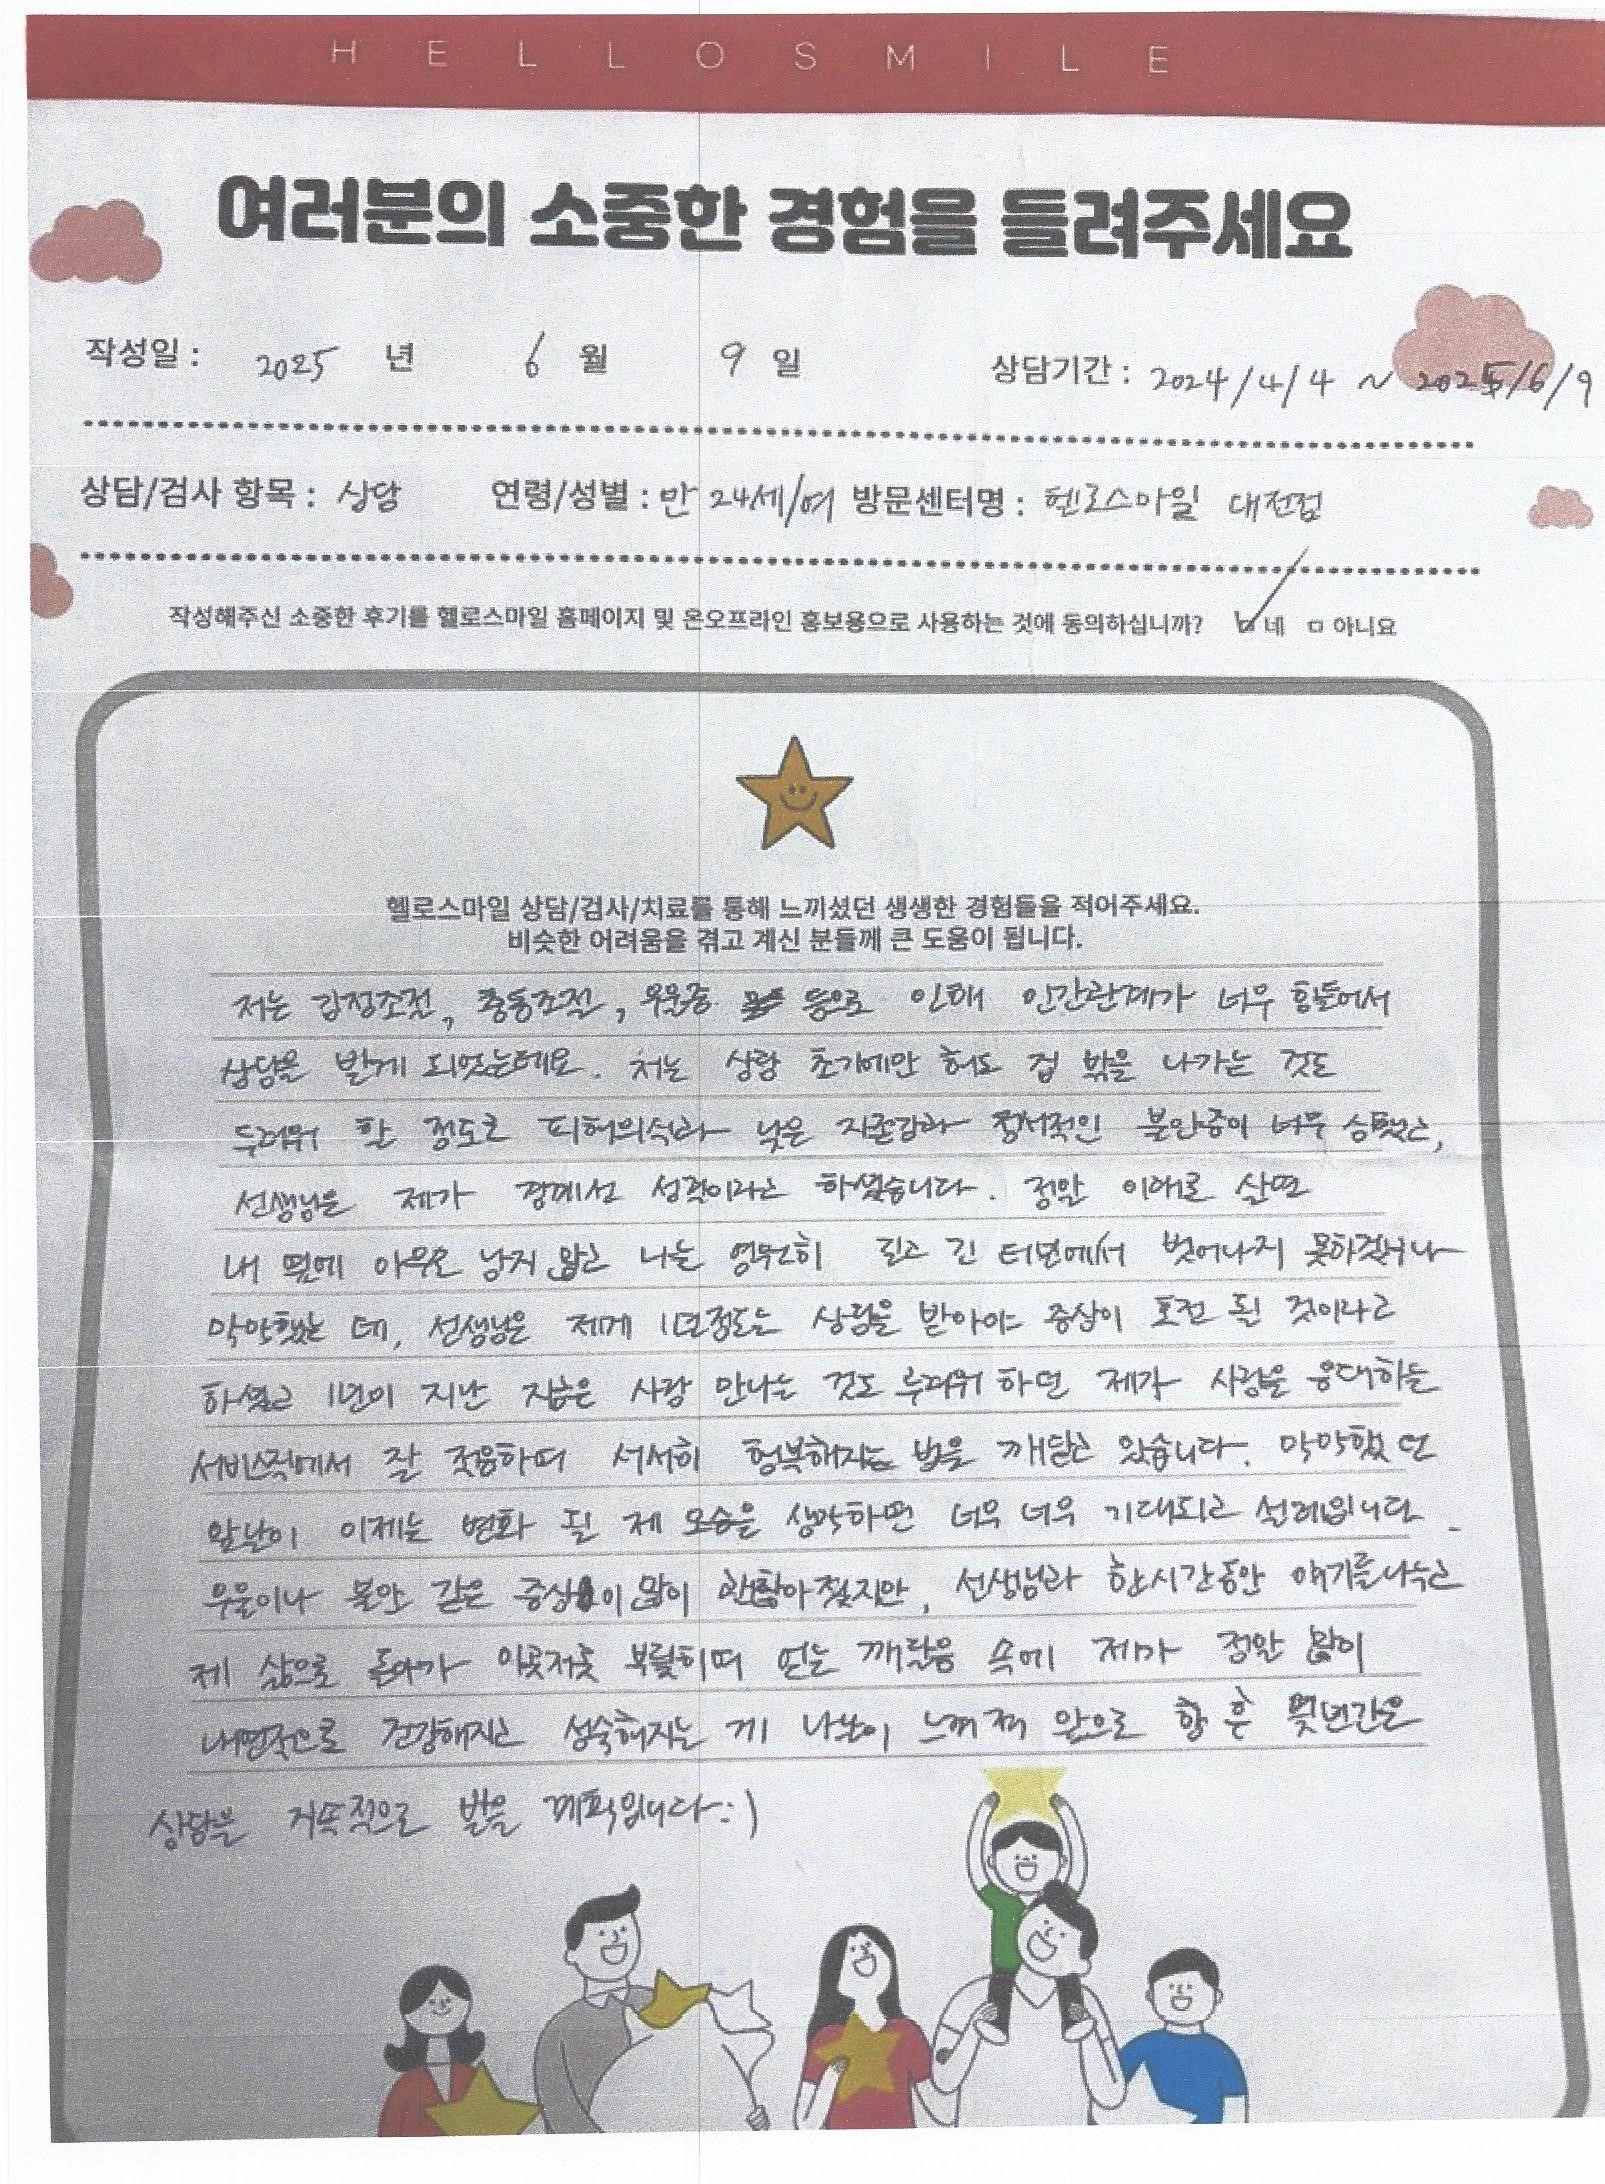 HELLOSMILE
여러분의 소중한 경험을 들려주세요
작성일 : 2025 년 6 월 9 일 상담기간 : 2024/4/4 ~ 2025/6/9
상담/검사 항목 : 상담 연령/성별 : 만 24세/여 방문센터명 : 헬로스마일 대전점
작성해주신 소중한 후기를 헬로스마일 홈페이지 및 온오프라인 홍보용으로 사용하는 것에 동의하십니까? ☑ 네 □ 아니요
헬로스마일 상담/검사/치료를 통해 느끼셨던 생생한 경험들을 적어주세요.
비슷한 어려움을 겪고 계신 분들께 큰 도움이 됩니다.
저는 감정조절, 충동조절, 우울증 등으로 인해 인간관계가 너무 힘들어서
상담을 받게 되었는데요. 저는 상담 초기에만 해도 집 밖을 나가는 것도
두려워 할 정도로 피해의식과 낮은 자존감과 정서적인 불안증이 너무 심했고,
선생님은 제가 경계선 성격이라고 하셨습니다. 정말 이대로 살면
내 옆에 아무도 남지 않고 나는 영원히 길고 긴 터널에서 벗어나지 못하겠거나
막막했는 데, 선생님은 제게 1년정도는 상담을 받아야 증상이 호전 될 것이라고
하셨고 1년이 지난 지금은 사람 만나는 것도 두려워 하던 제가 사람을 응대하는
서비스직에서 잘 적응하며 서서히 행복해지는 법을 깨닫고 있습니다. 막막했던
앞날이 이제는 변화 될 제 모습을 생각하면 너무 너무 기대되고 설레입니다.
우울이나 불안 같은 증상이 많이 괜찮아졌지만, 선생님과 한시간동안 얘기를나누고
제 삶으로 돌아가 이곳저곳 부딪히며 얻는 깨달음 속에 제가 정말 많이
내면적으로 건강해지고 성숙해지는 게 나날이 느껴져 앞으로 향후 몇년간은
상담을 지속적으로 받을 계획입니다:)